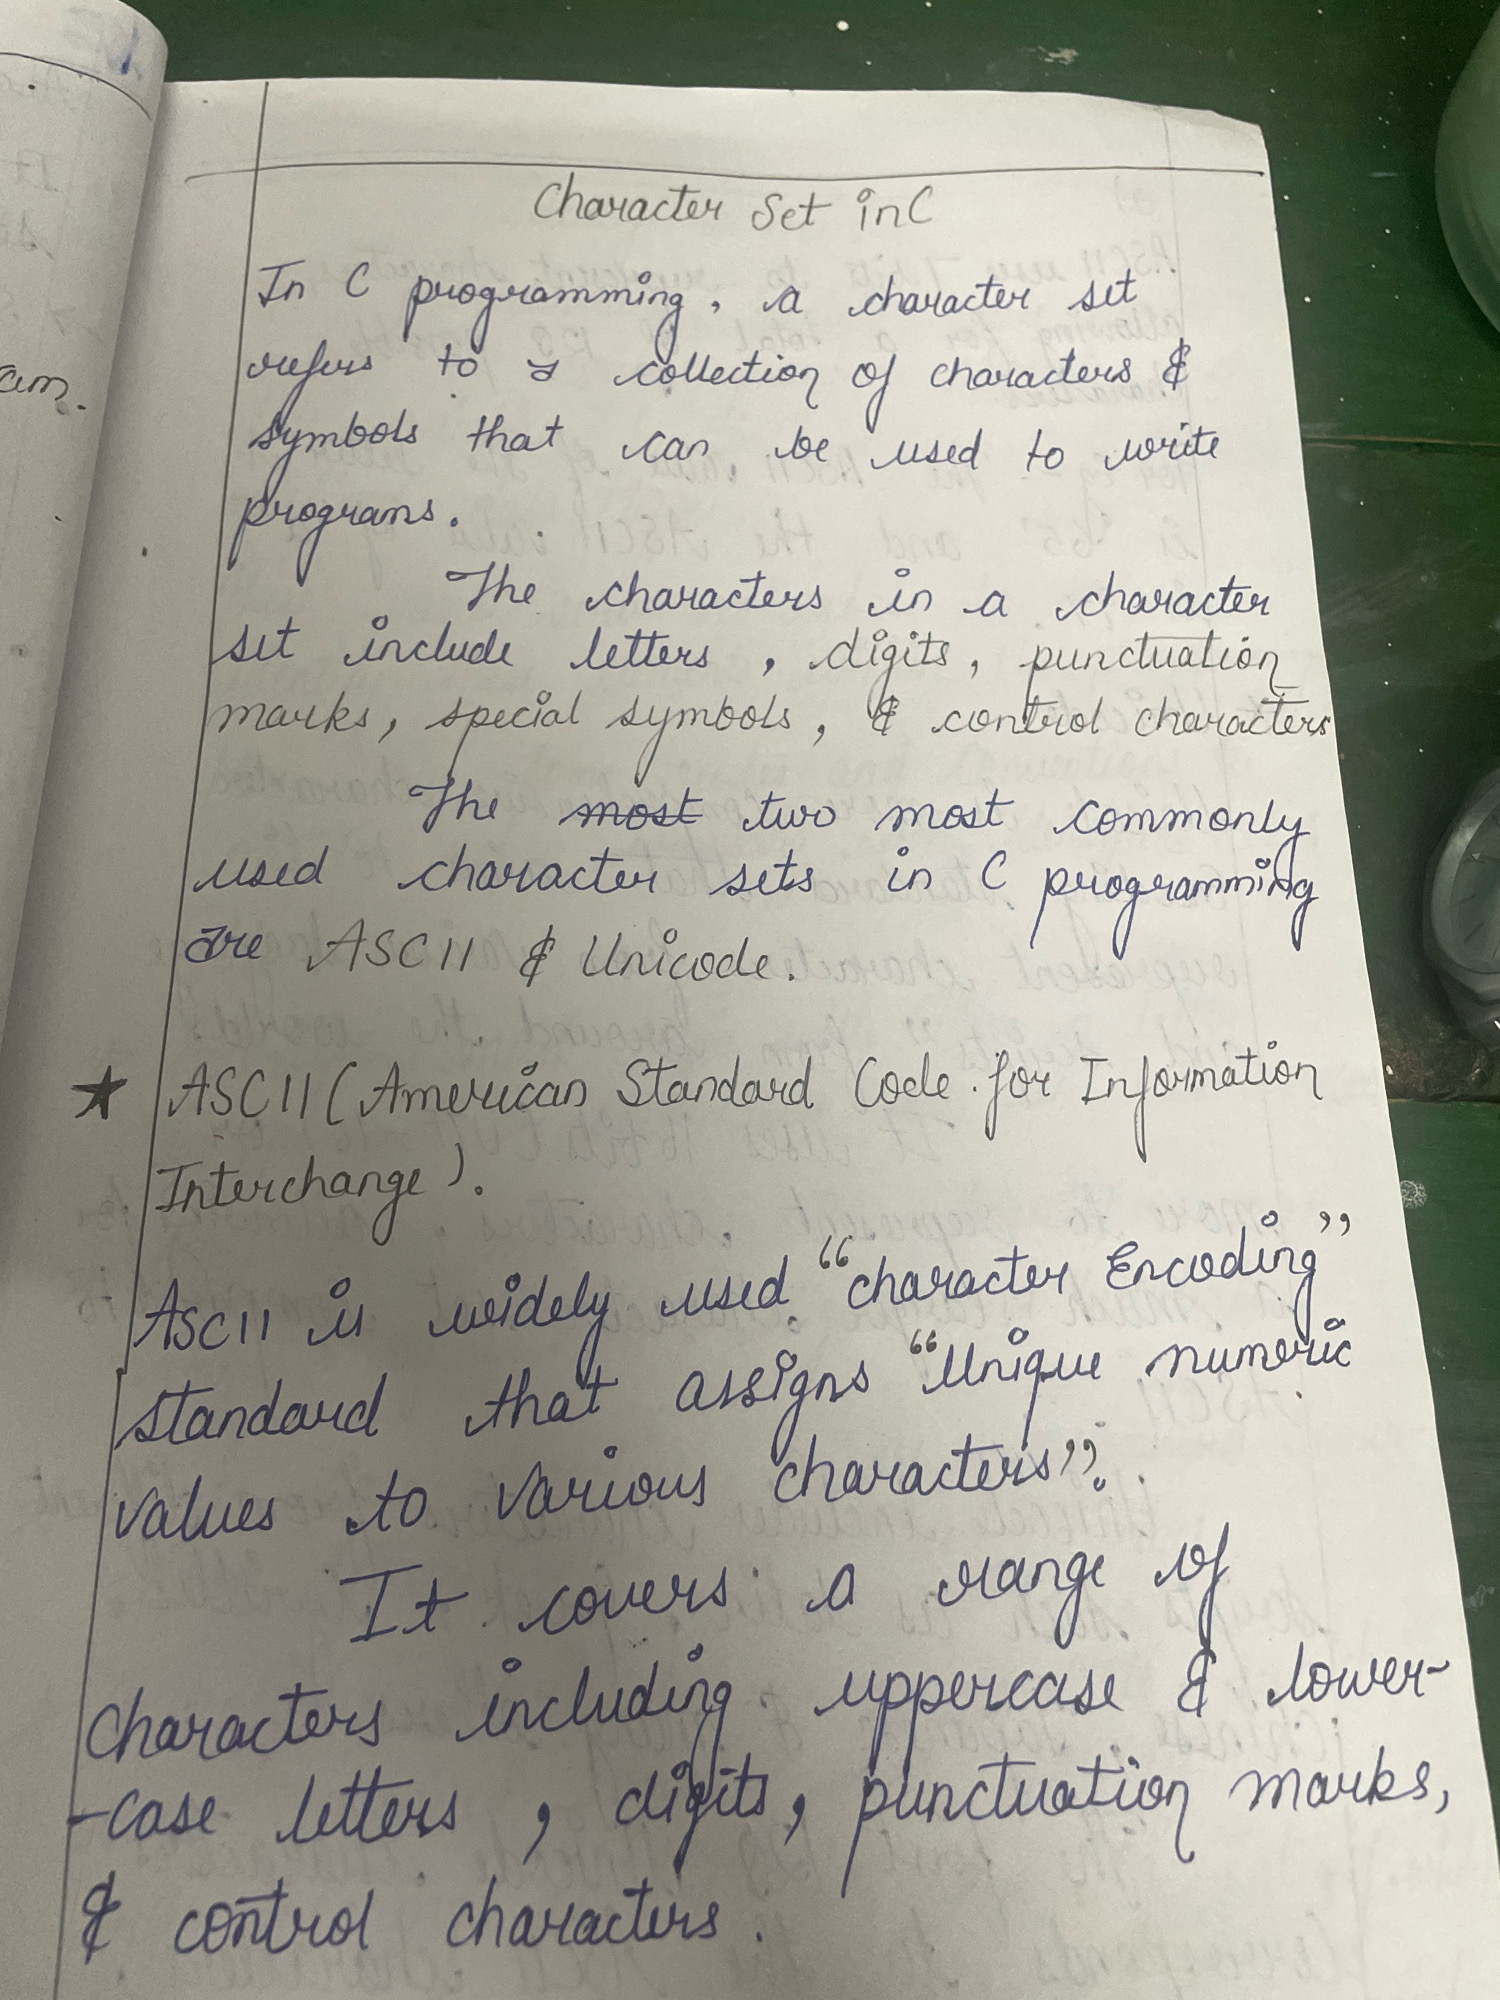 Character Set in C
In C programming, a character set
refers to a collection of characters &
symbols that can be used to write
programs.
The characters in a character
set include letters, digits, punctuation
marks, special symbols, & control characters
The most two most commonly
used character sets in C programming
are ASCII & Unicode.
★ ASCII (American Standard Code for Information
Interchange).
ASCII is widely used "character Encoding"
standard that assigns "Unique numeric
values to various characters".
It covers a range of
characters including uppercase & lower-
-case letters, digits, punctuation marks,
& control characters.
am.